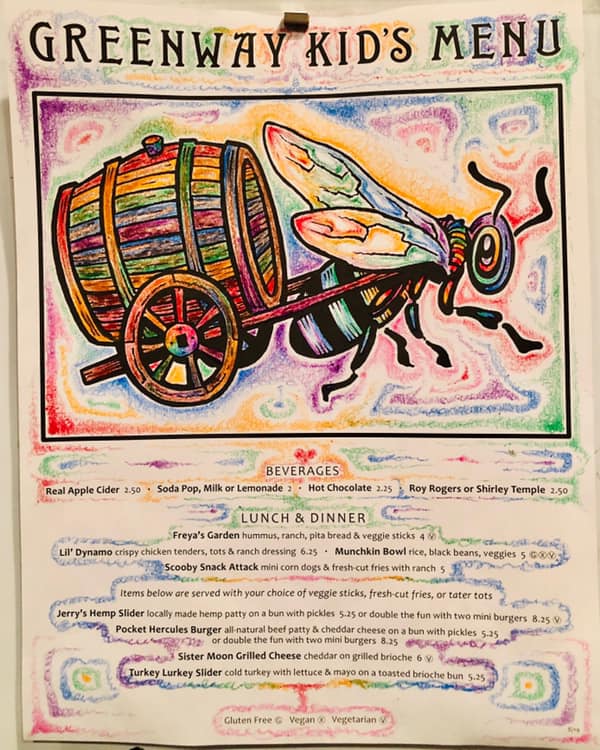 GREENWAY KID'S MENU
BEVERAGES
Real Apple Cider 2.50 • Soda Pop, Milk or Lemonade 2 • Hot Chocolate 2.25 • Roy Rogers or Shirley Temple 2.50
LUNCH & DINNER
Freya's Garden hummus, ranch, pita bread & veggie sticks 4 Ⓥ
Lil' Dynamo crispy chicken tenders, tots & ranch dressing 6.25 • Munchkin Bowl rice, black beans, veggies 5 ⒼⓍⓋ
Scooby Snack Attack mini corn dogs & fresh-cut fries with ranch 5
Items below are served with your choice of veggie sticks, fresh-cut fries, or tater tots
Jerry's Hemp Slider locally made hemp patty on a bun with pickles 5.25 or double the fun with two mini burgers 8.25 Ⓥ
Pocket Hercules Burger all-natural beef patty & cheddar cheese on a bun with pickles 5.25
or double the fun with two mini burgers 8.25
Sister Moon Grilled Cheese cheddar on grilled brioche 6 Ⓥ
Turkey Lurkey Slider cold turkey with lettuce & mayo on a toasted brioche bun 5.25
Gluten Free Ⓖ Vegan Ⓧ Vegetarian Ⓥ